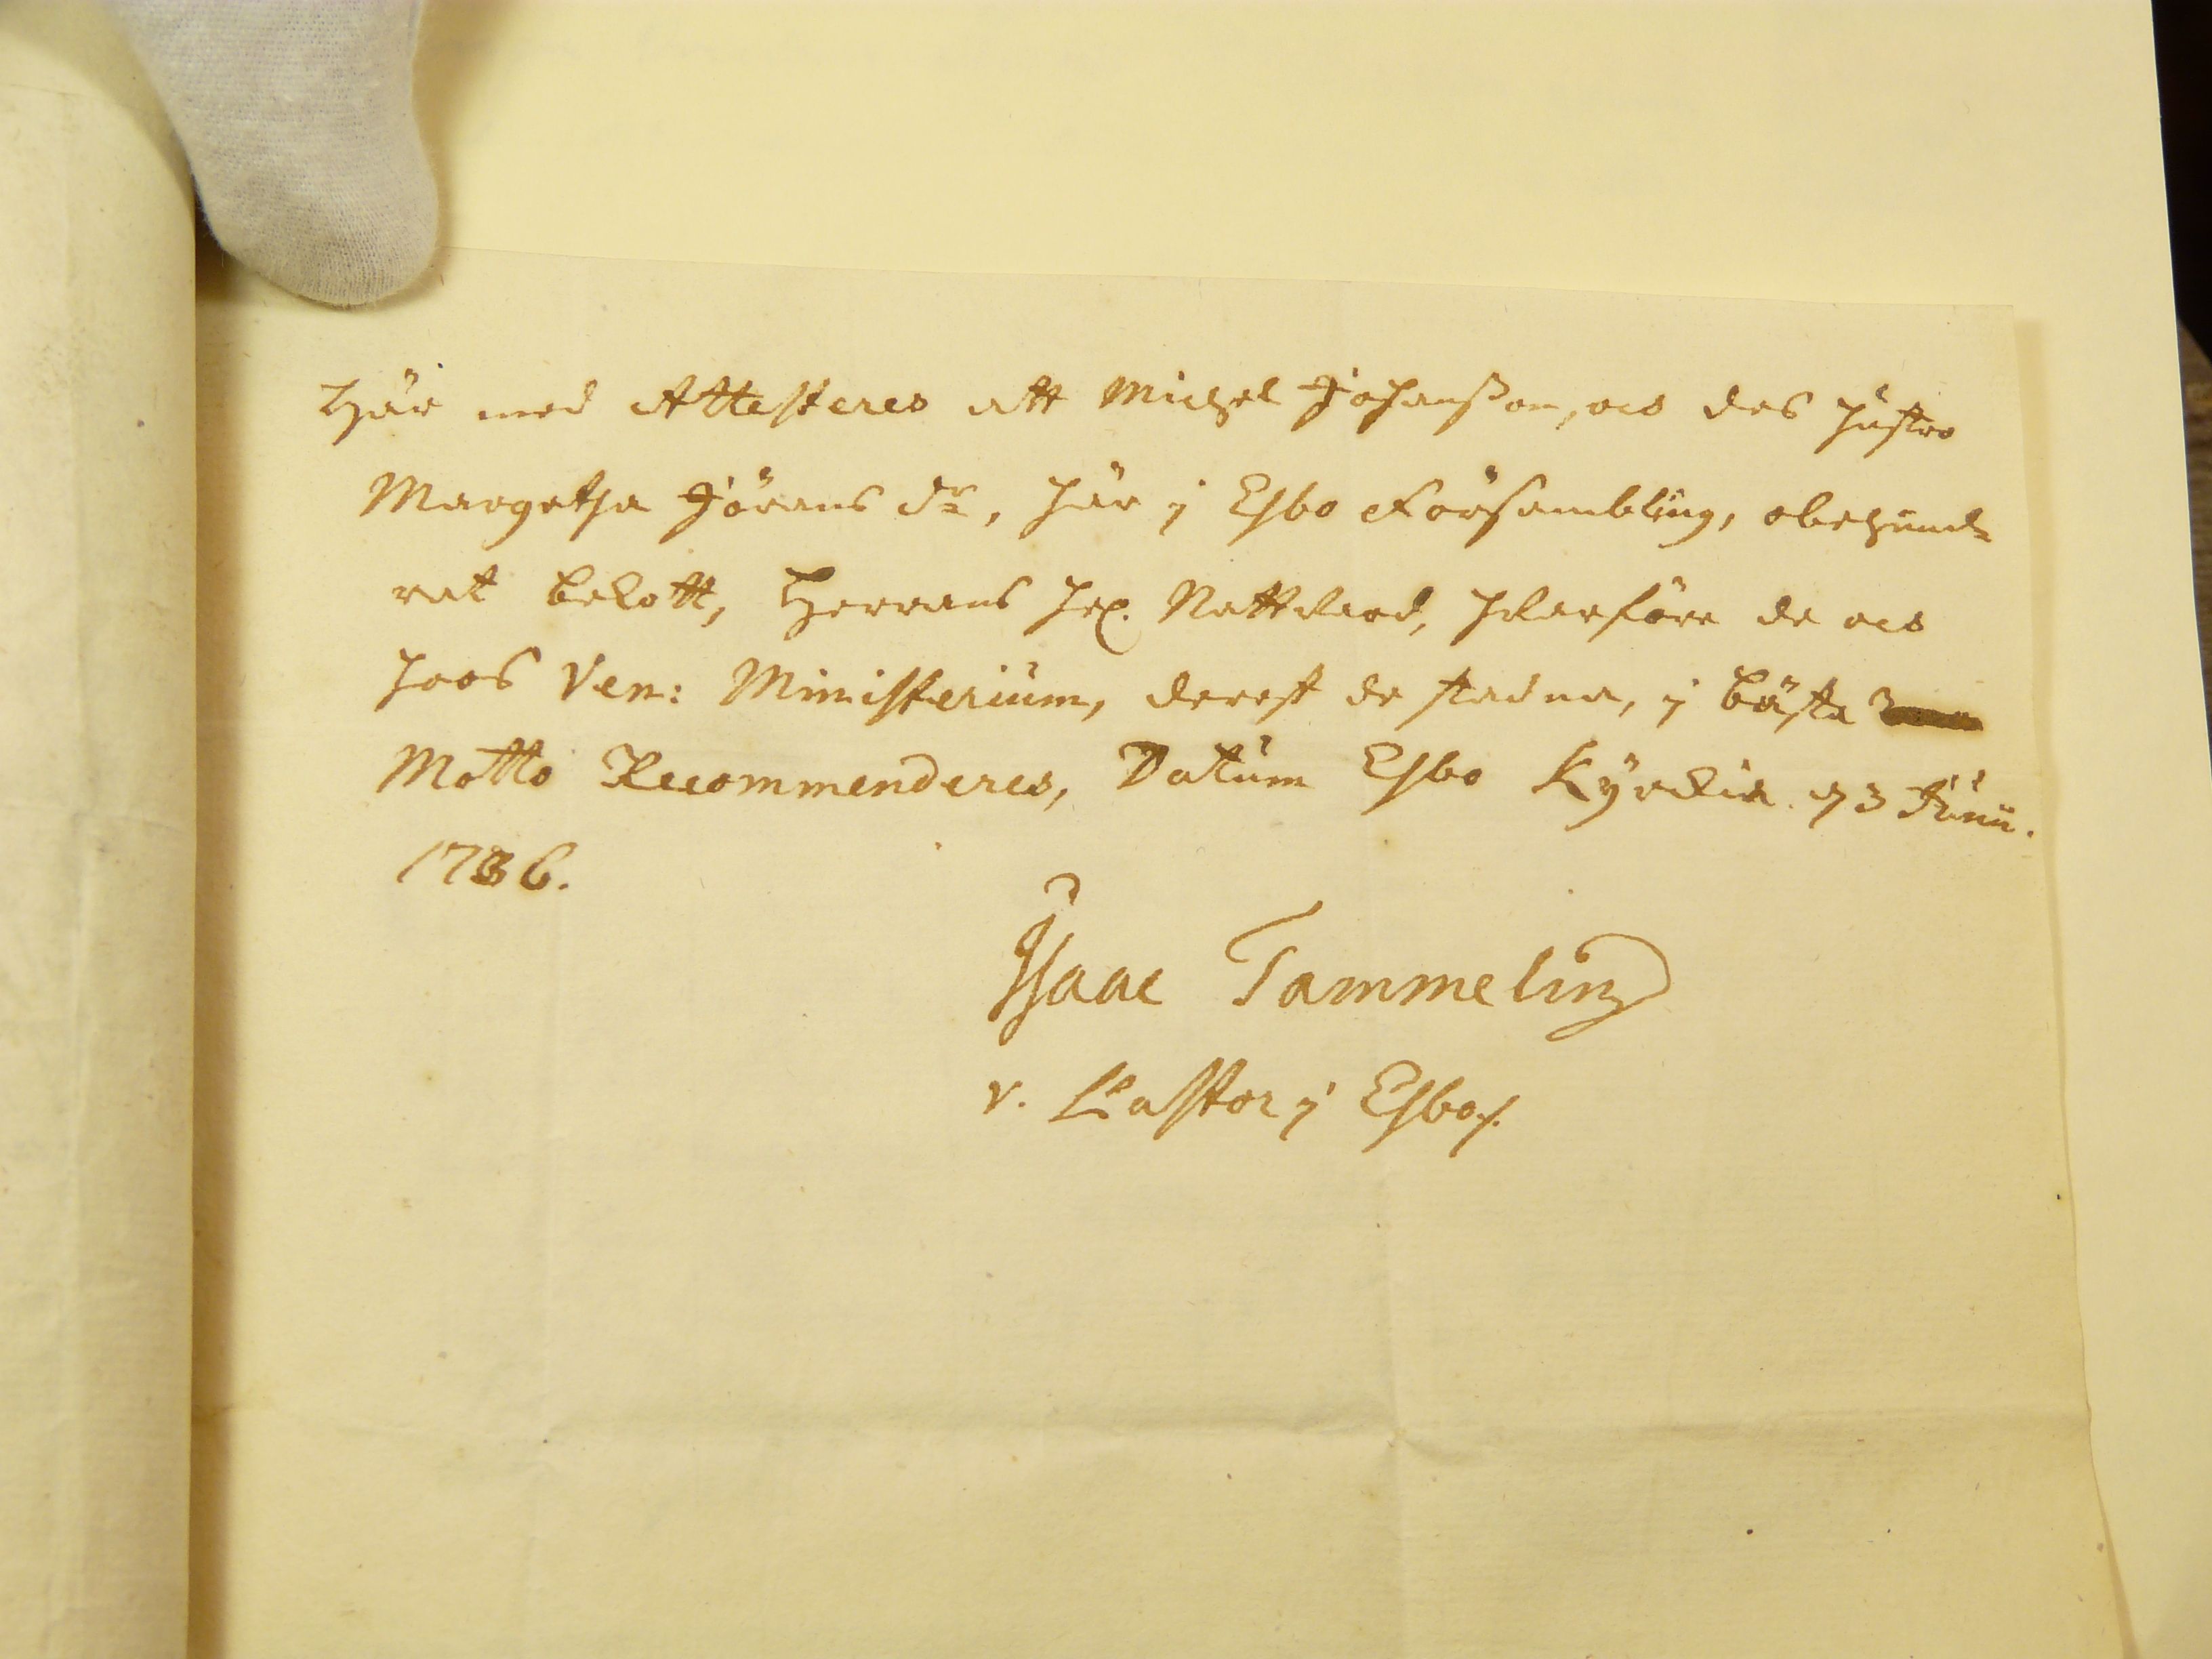 Här med Attesteres att Michel Johansson, och des hustro
Margetha Jörans dr, här j Esbo Försambling, obehind=
rat bekott, Herrans H. Nattvard, derföre de och
hoos Ven: Ministerium, derest de stadna, j bästa
Motto Recommenderes, Datum Esbo Kyrckia d 3 Junii.
1736.
Isaac Tammelin
v. Pastor j Esbo/.